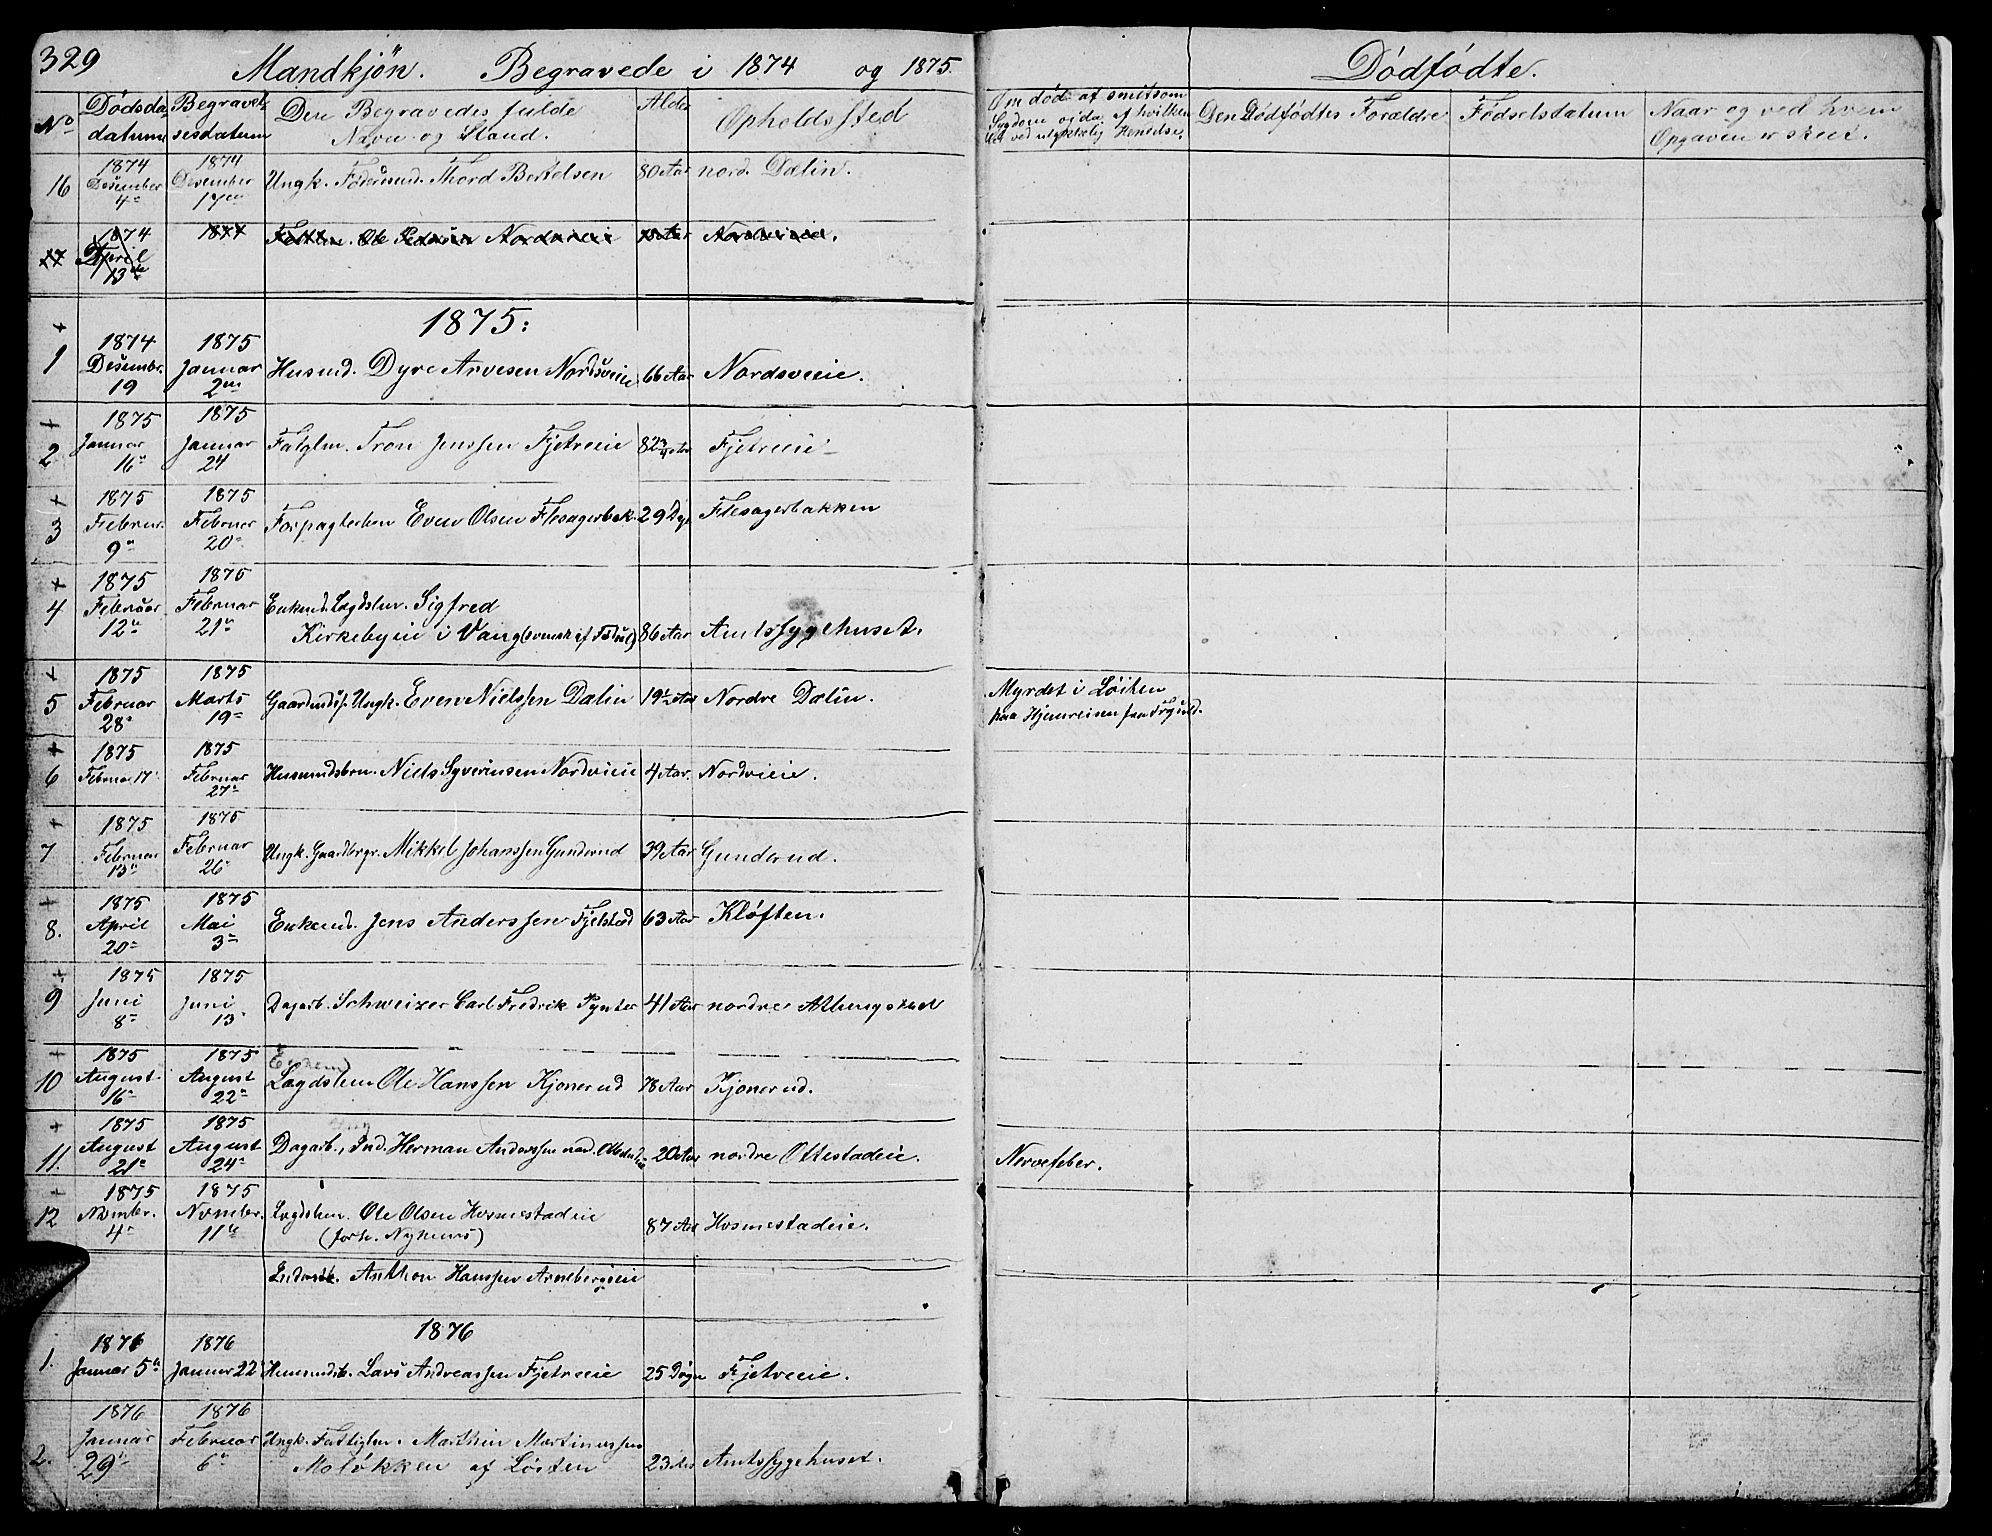 329
Mandkjön. Begravede i 1874 og 1875. Dödfödte.
No Dödsda, datum Begravel, sesdatum Den Begravedes fulde Navn og Stand. Alder Opholdssted Om död af smitsom Sygdom og da af hvilken Den Dödfödtes Forældre Födselsdatum Naar og ved hvem Opgaven er skeet.
16 1874 Desember 4de 1874 Desember 17en Ungk. Föderaadsmd. Thord Bertelsen 80 Aar nord. Dælin.
17 1874 April 13de 1874 Ole Pedersen Nordsvieie Nordsvieie.
1875:
+ 1 1874 Desembr. 19 1875 Januar 2en Husmd. Dyre Arvesen Nordsveie 66 Aar Nordsveie.
+ 2 1875 Januar 16 1875 Januar 24 Fatglm. Tron Jenssen Fjetreeie 82 Aar Fjetreeie
+ 3 1875 Februar 9 1875 Februar 20 Forpagterbrn Even Olsen Flesagerbak. 29 Dge Flesagerbakken
+ 4 1875 Februar 12 1875 Februar 21 Enkemd. Lægdslm. Sigfred
Kirkebyeie i Vang (svensk af Födsel) 86 Aar Amtssygehuset.
+ 5 1875 Februar 28 1875 Marts 19 Gaardmds. Ungk. Even Nielssen Dælin 19½ Aar Nordre Dælin. Myrdet i Löiten
paa Hjemreisen fra
+ 6 1875 Februar 17 1875 Februar 27 Husmandsbrn. Niels Syverinsen Nordvieie 4 Aar. Nordvieie.
+ 7 1875 Februar 13 1875 Februar 26 Ungk. Gaardbrgr. Mikkel Johanssen Gunderud 39 Aar Gunderud.
+ 8. 1875 April 20 1875 Mai 3 Enkemd. Jens Anderssen Fjelstad 63 Aar Klöften.
+ 9 1875 Juni 8 1875 Juni 13 Dagarb. Schweizer Carl Fredrik 41 Aar nordre
+ 10 1875 August 16 1875 August 22 Enkemd Lægdslem Ole Hanssen Kjonerud 78 Aar Kjonerud.
+ 11. 1875 August 21 1875 August 24 Dagarb., Ind. Herman Anderssen nord. 20 Aar nordre Ottestadeie. Nervefeber.
+ 12 1875 Novembr. 4 1875 Novembr. 11te Lægdslem. Ole Olsen Hosmestadeie
(forh. Nyhuus) 87 Aar Hosmestadeie.
Inderstb. Anthon Hanssen Arnebergseie
1876
1. 1876 Januar 5te 1876 Januar 22 Husmandsb. Lars Andreassen Fjetreeie 25 Dögn Fjetreeie.
2. 1876 Januar 29 1876 Februar 6 Ungk. Fattiglm. Marthin Martinussen
Molökken af Löiten 23 Aar Amtssygehuset.